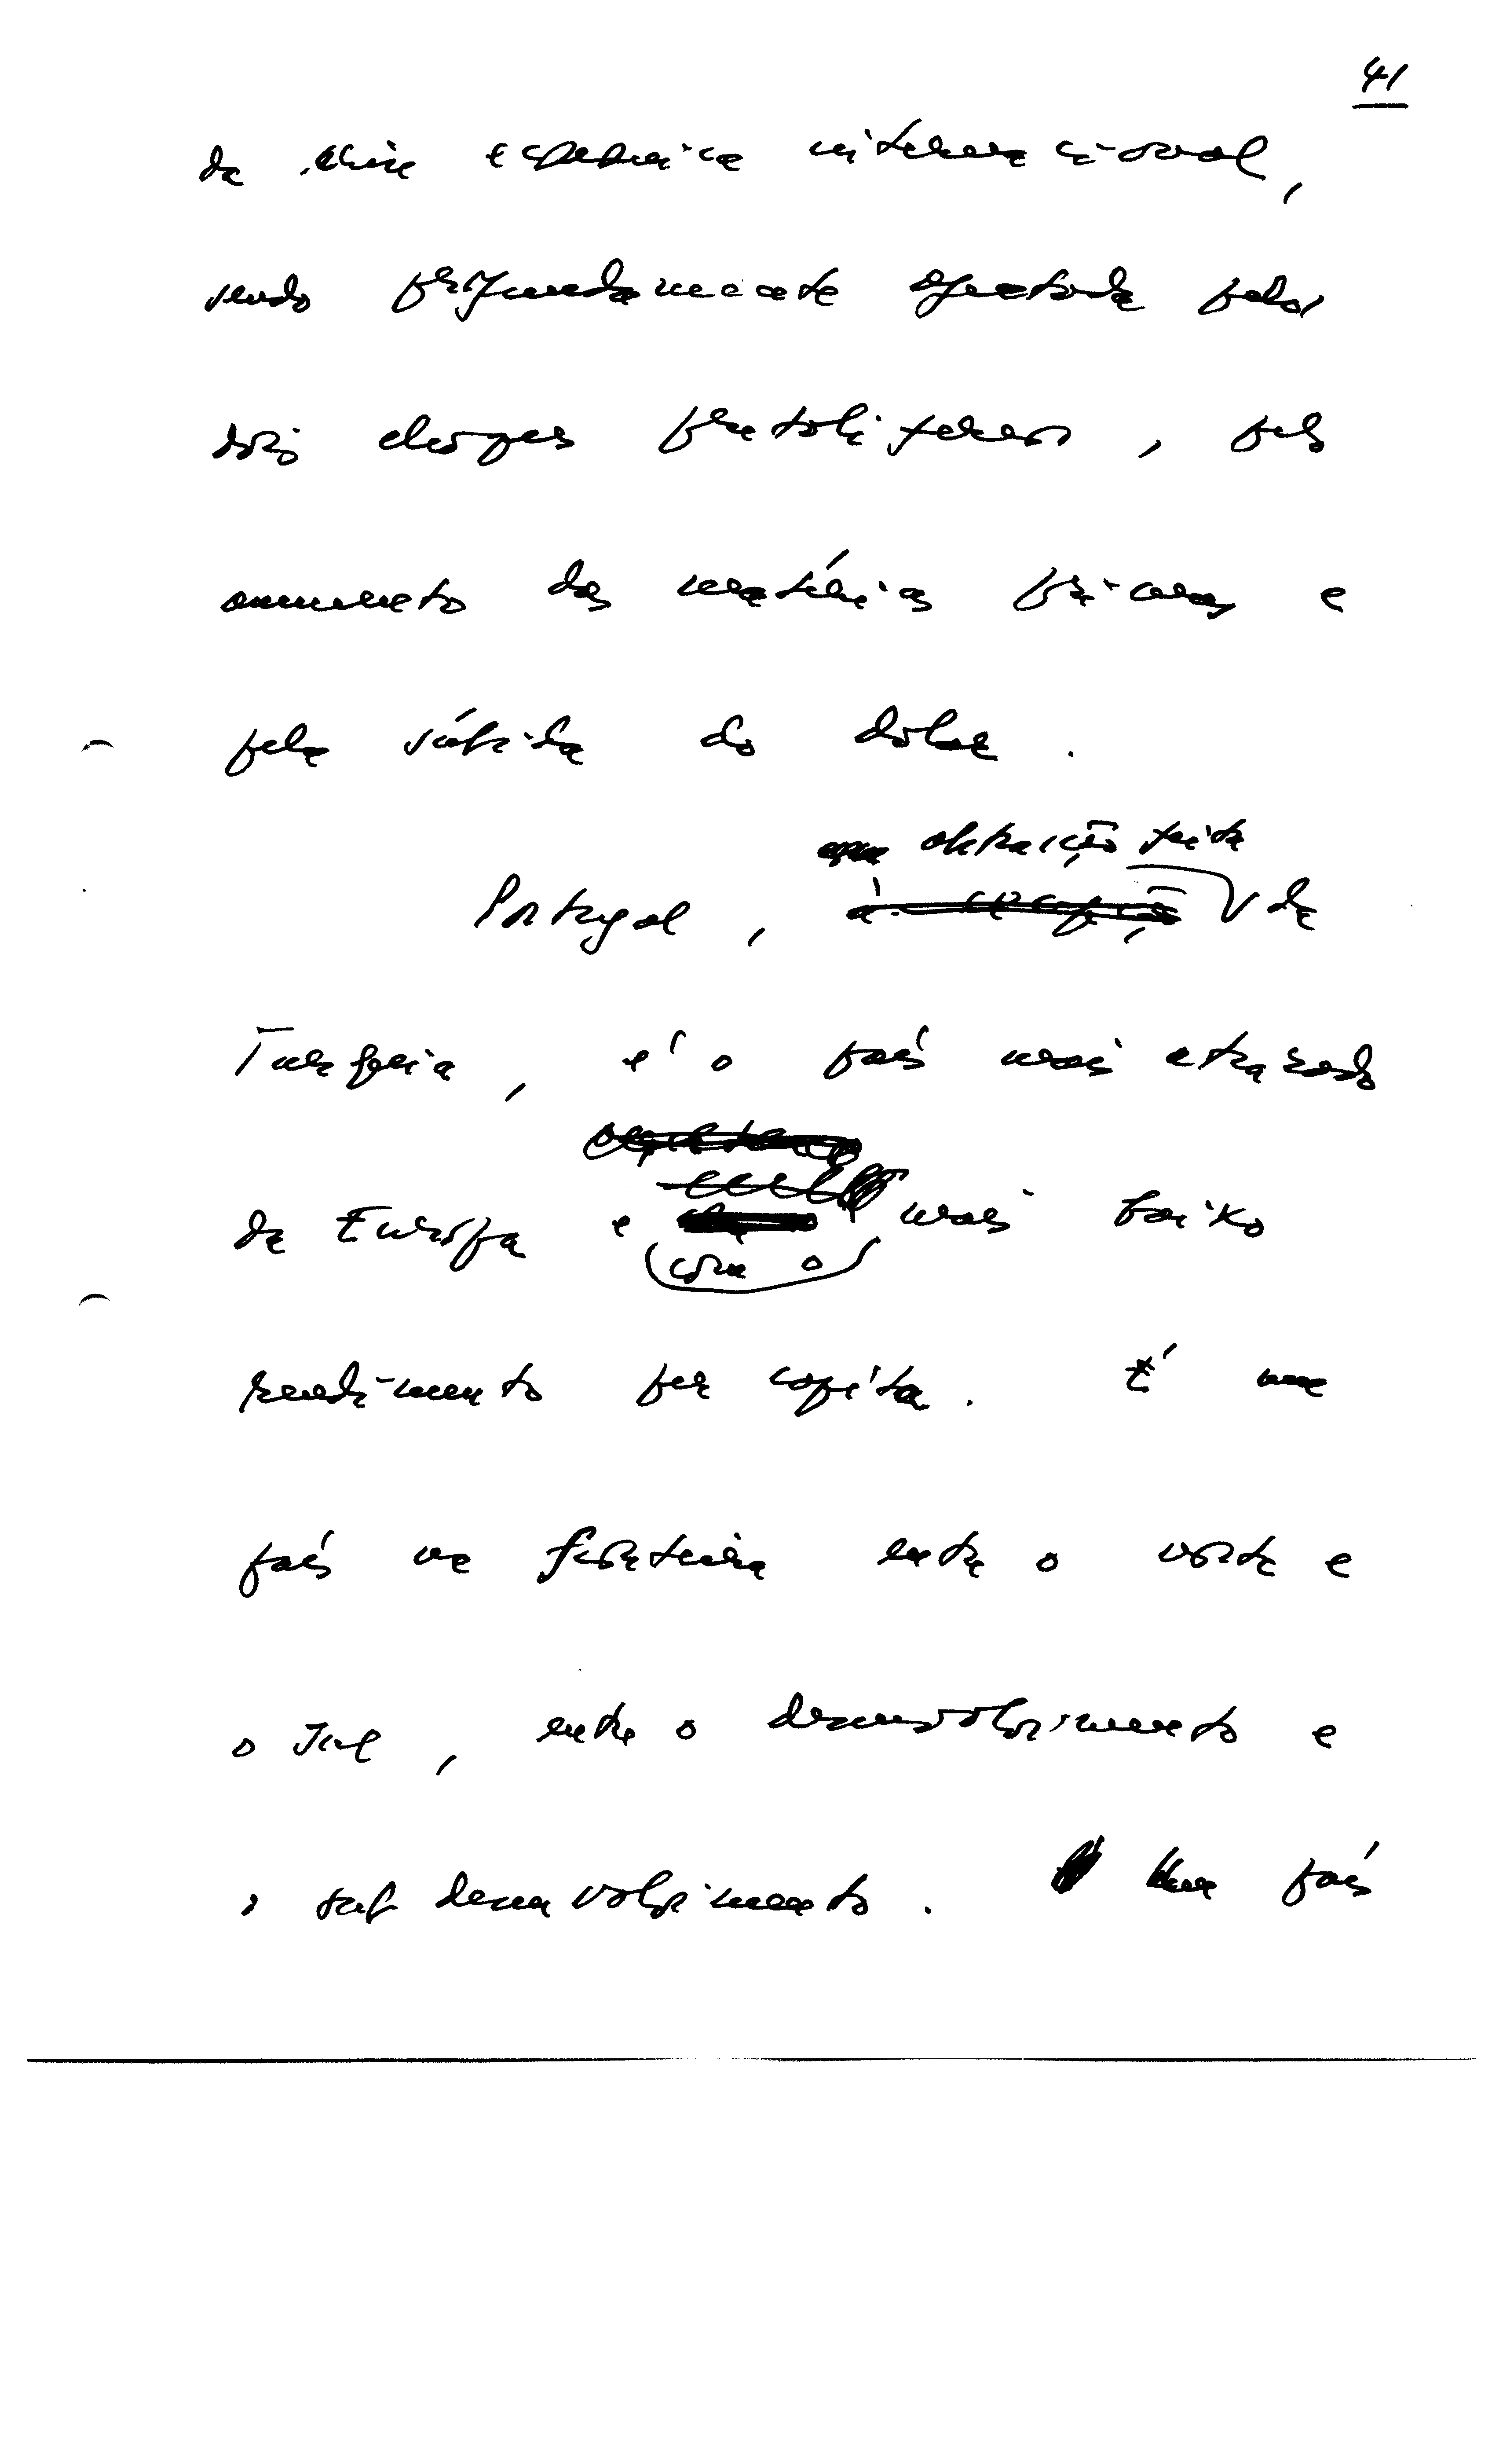 41
da crise económica internacional,
sendo profundamente afectada pelos
dois choques petrolíferos, pelo
aumento das matérias primas e
pela súbida do dólar.
com abstração feita
Portugal, à excepção da
Turquia, é o país mais atrazado
da Europa e mais baixo
com o
rendimento per capita. É um
país na fronteira entre o norte e
o Sul, entre o desenvolvimento e
o sub desenvolvimento. Um país